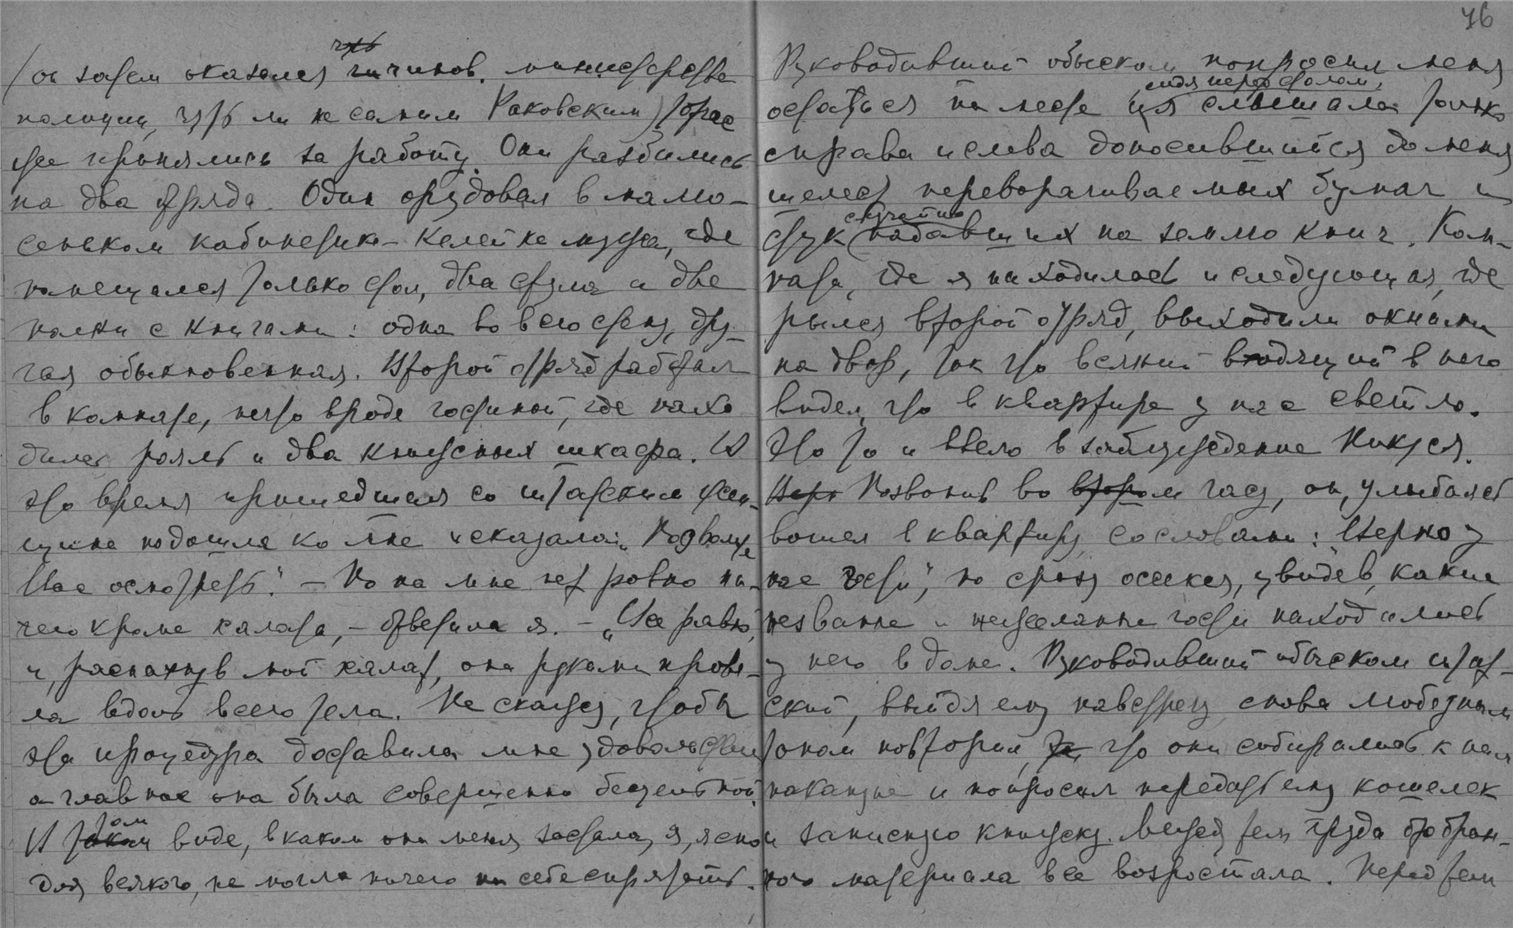 (он затем оказался чинов. министерства
полиции, чуть ли не самим Раковским) тотчас
же принялись за работу. Они разбились
на два отряда. Один орудовал в мало-
сеньком кабинетике-келейке мужа, где
помещался только стол, два стула и две
полки с книгами: одна во всю стену, дру-
гая обыкновенная. Второй отряд работал
в комнате, нечто вроде гостиной, где нахо
дилась рояль и два книжных шкафа. В
это время пришедшая со штатскими жен-
щина подошла ко мне и сказала: "Подвольте
Вас осмотреть." — Но на мне нет ровно ни-
чего кроме халата, — ответила я. — "Все равно,
и, распахнув мой халат, она руками прове-
ла вдоль всего тела. Не скажу, чтобы
эта процедура доставила мне удовольствие
а главное она была совершенно бесцельной.
В том виде, в каком они меня застали, я, ясно
для всякого, не могла ничего на себе спрятать.
76
Руководивший обыском попросил меня
остаться на месте сидя перед столом,
и я слышала только
справа и слева доносившийся до меня
шелест переворачиваемых бумаг и
стук случайно падавших на землю книг. Ком-
ната, где я находилась и следующая, где
рылся второй отряд, выходили окнами
на двор, так что всякий входящий в него
видел, что в квартире у нас светло.
Это то и ввело в заблуждение Никуся.
Позвонив во втором часу, он, улыбаясь
вошел в квартиру со словами: "Верно у
нас гости", но сразу осекся, увидев, какие
незванные и нежеланные гости находились
у него в доме. Руководивший обыском штат-
ский, выйдя ему навстречу снова любезным
тоном повторил, что они собирались к нам
накануне и попросил передать ему кошелек
и записную книжку. Между тем груда отобран-
ного материала все возростала. Перед тем